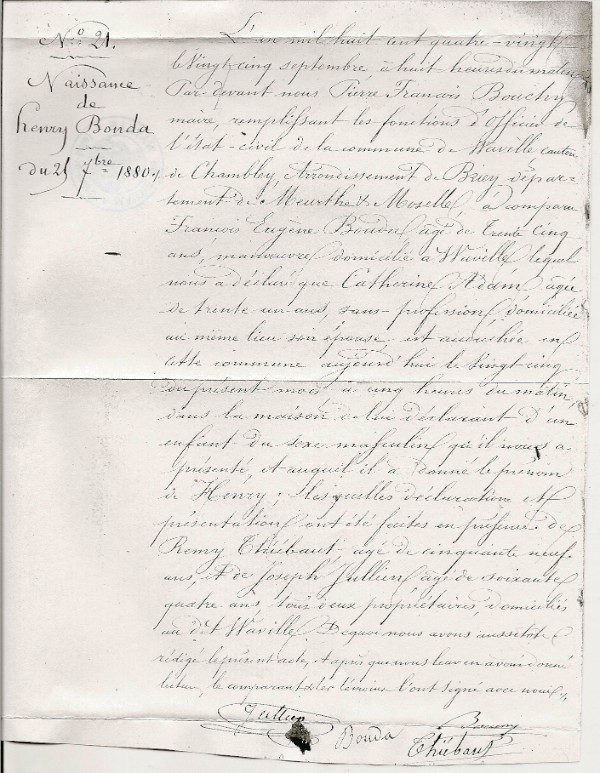 Nos 21.
Naissance
de
henry Bonda
du 25 7bre 1880.
L'an mil huit cent quatre-vingt
le vingt-cinq septembre, à huit heures du matin
Par devant nous Pierre François Bouchy
maire, remplissant les fonctions d'Officier de
l'état-civil de la commune de Waville canton
de Chambley, Arrondissement de Briey dépar-
tement de Meurthe & Moselle, a comparu
François Eugène Bonda âgé de trente cinq
ans, manœuvre domicilié à Waville lequel
nous a déclaré que Catherine Adam, agée
de trente un ans, sans profession domiciliée
au même lieu son épouse est accouchée en
cette commune aujourd'hui le vingt-cinq
du présent mois à cinq heures du matin,
dans la maison de lui déclarant d'un
enfant du sexe masculin qu'il nous a
présenté, et auquel il a donné le prénom
de Henry; lesquelles déclaration et
présentation ont été faites en présence de
Remy Thiébaut, agé de cinquante neuf
ans, et de Joseph Jullien agé de soixante
quatre ans, tous deux propriétaires, domiciliés
au dit Waville. De quoi nous avons aussitôt
rédigé le présent acte, et après que nous leur en avons donné
lecture, le comparant et les témoins l'ont signé avec nous.
Jullien
Bonda
Thiébaut